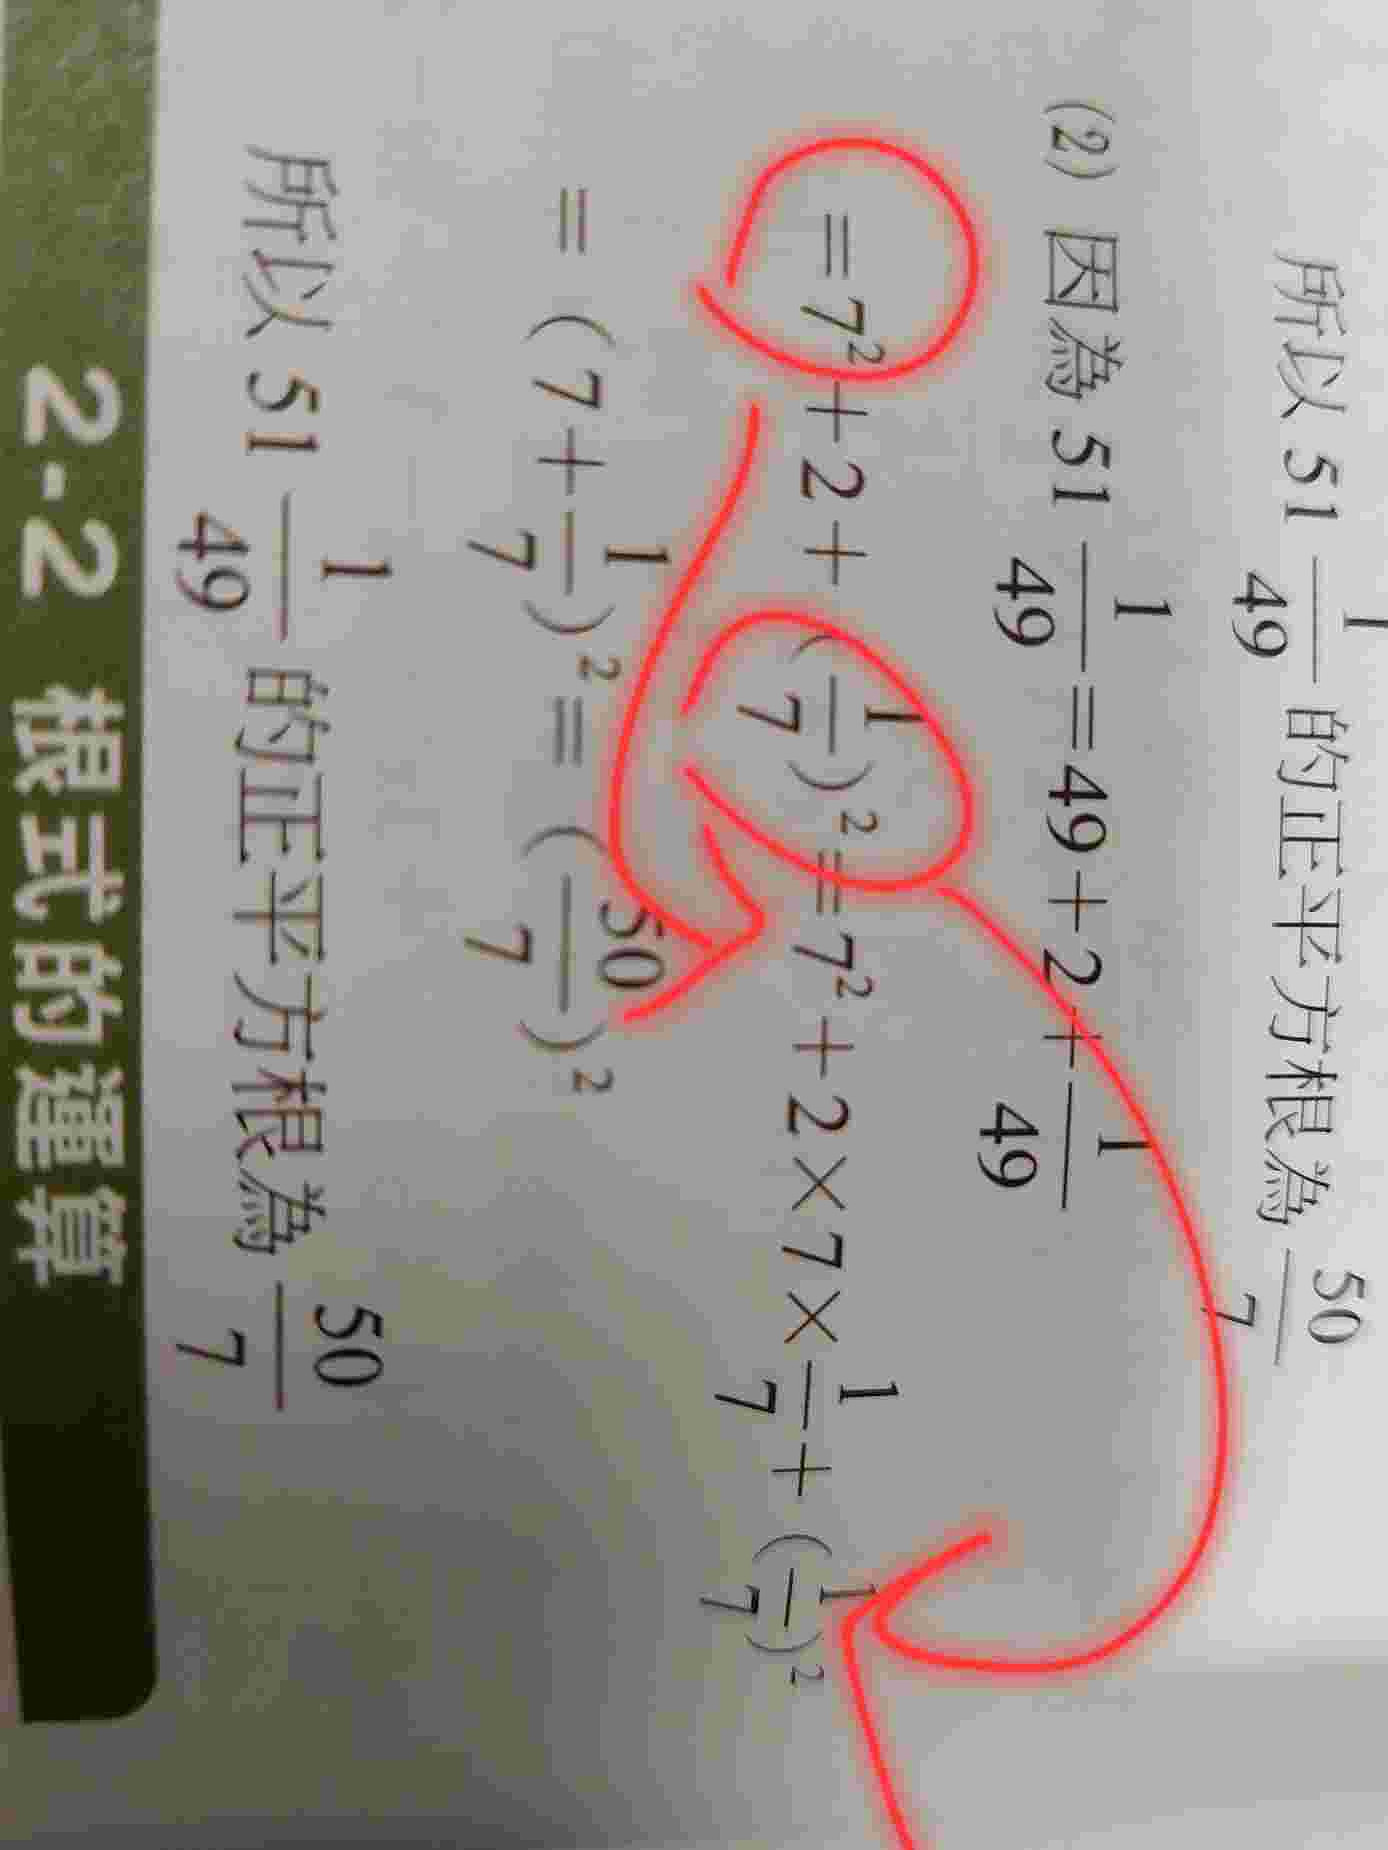 所以 51 1/49 的正平方根為 50/7
(2) 因為 51 1/49 = 49 + 2 + 1/49
= 7² + 2 + (1/7)² = 7² + 2 × 7 × 1/7 + (1/7)²
= (7 + 1/7)² = (50/7)²
所以 51 1/49 的正平方根為 50/7
2-2 根式的運算